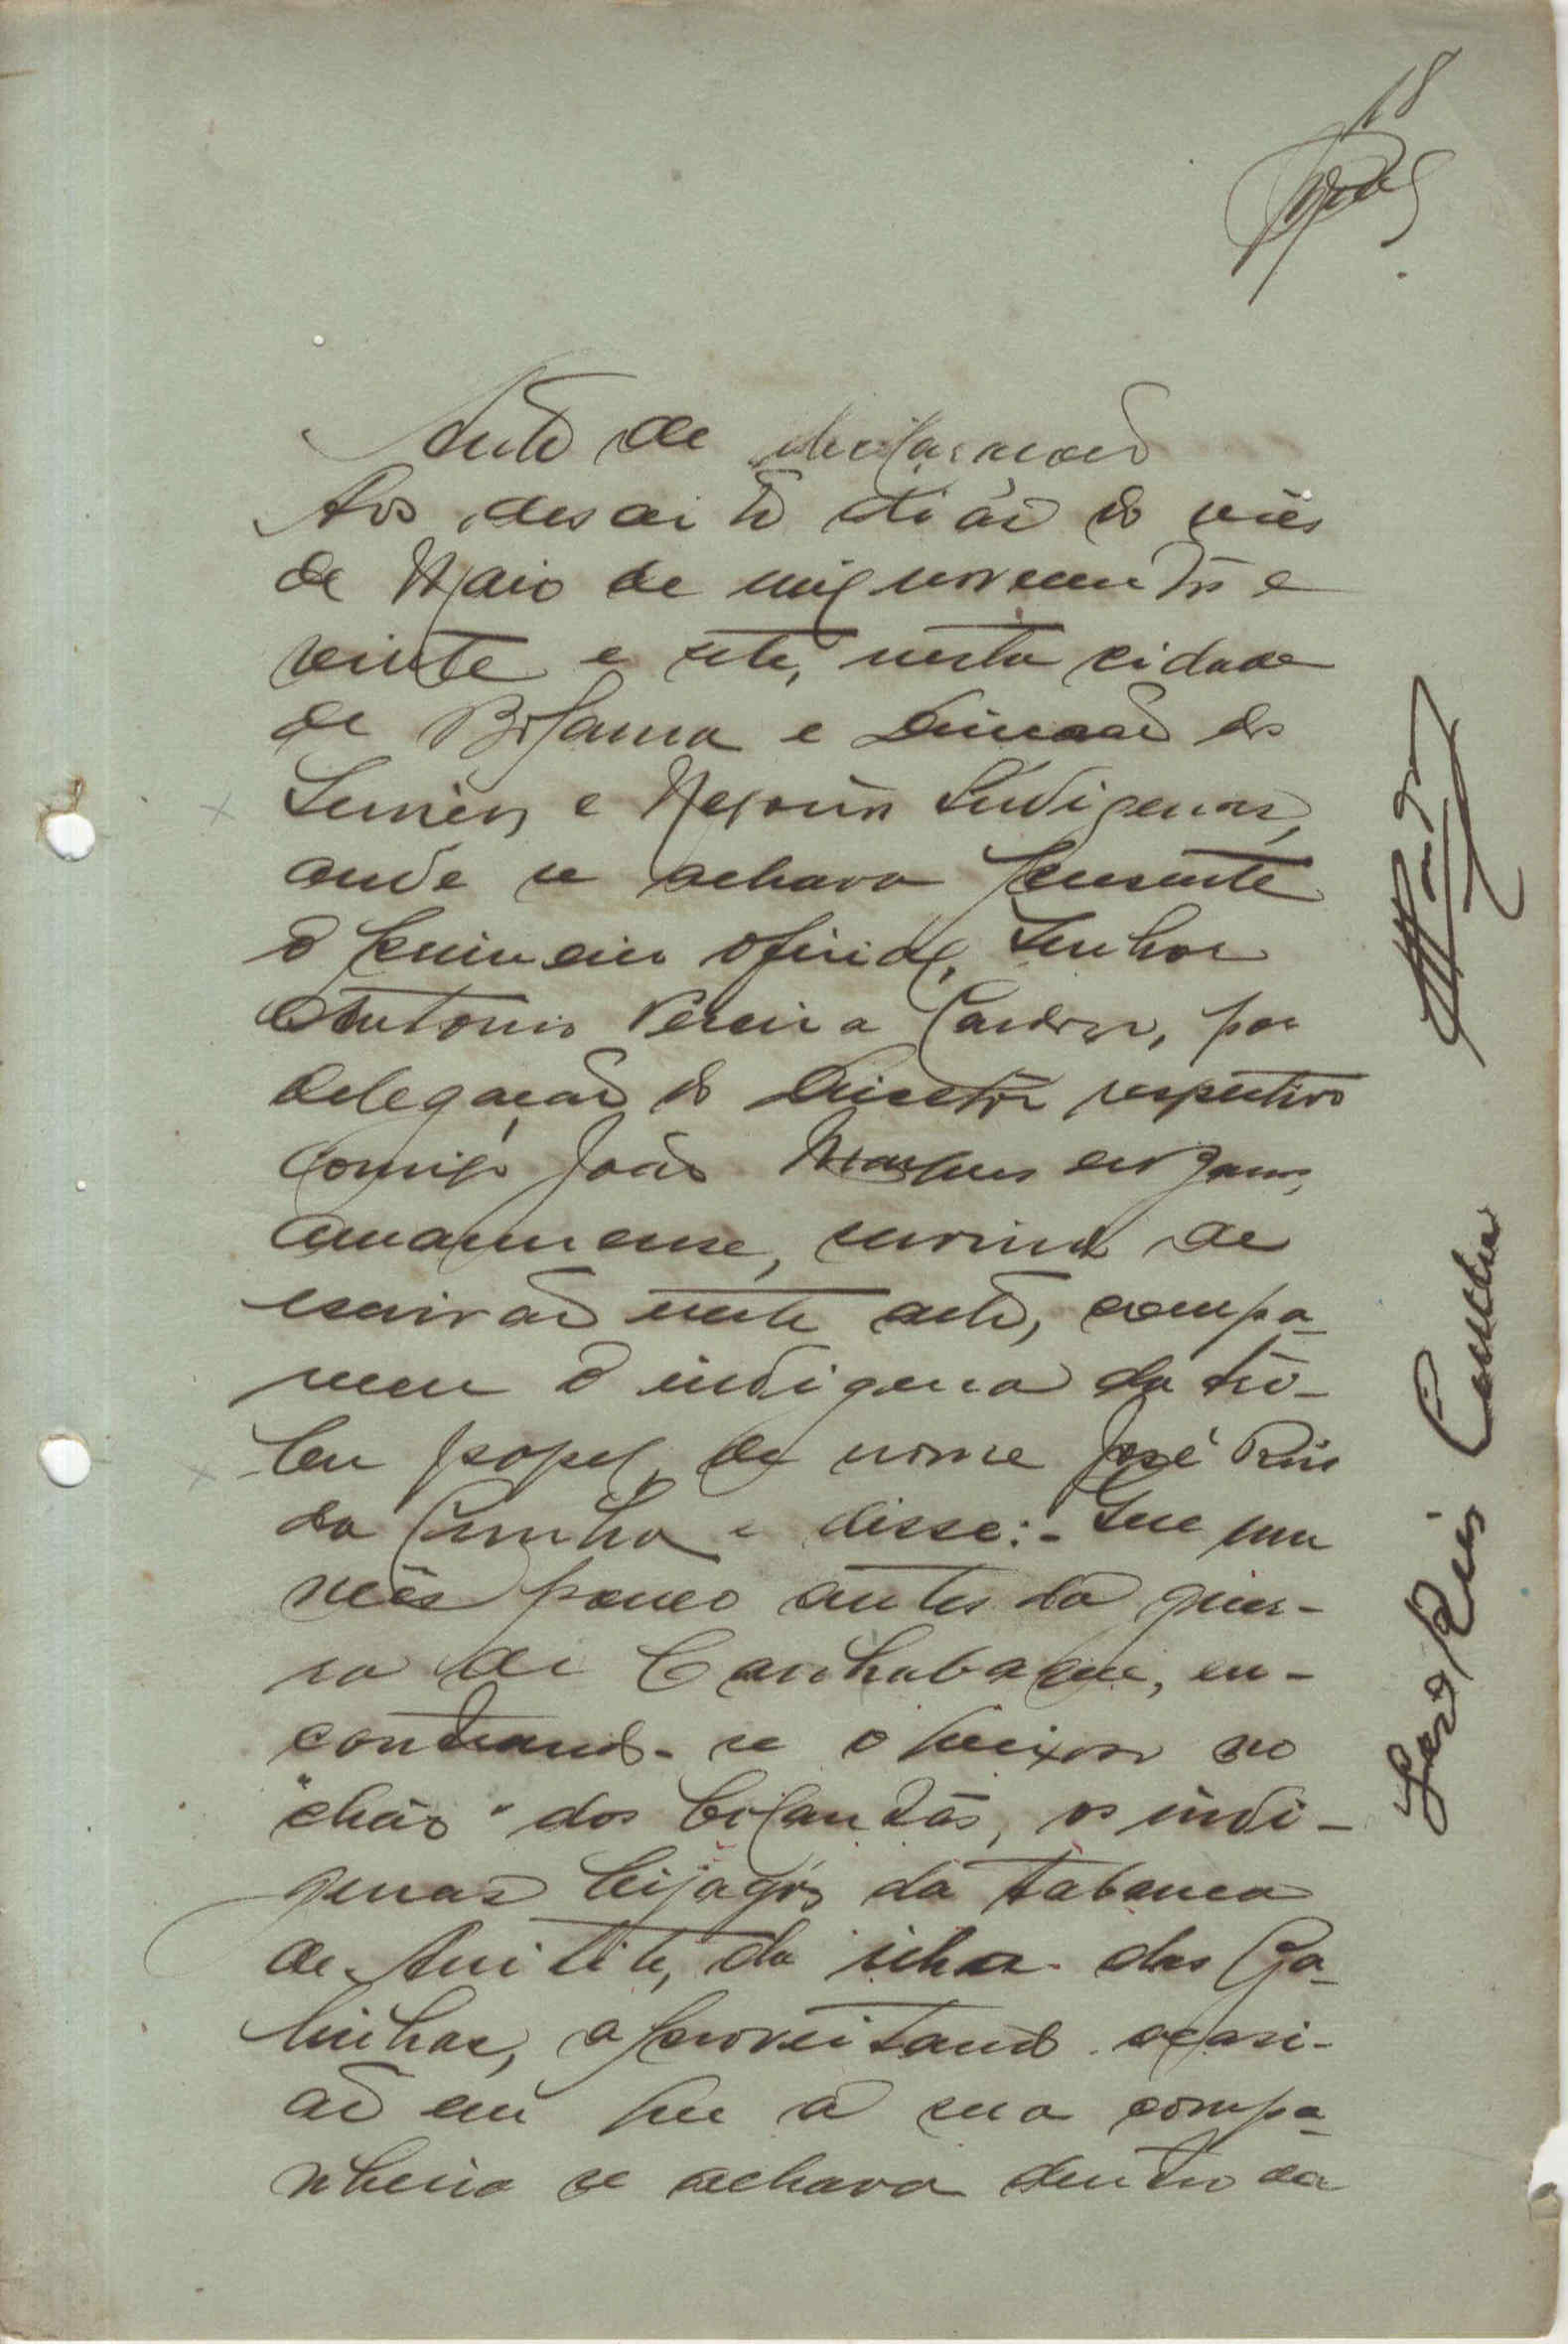 18
Auto de declarações
Aos desoito dias do mês
de Maio de mil novecentos e
vinte e sete, nesta cidade
de Bolama e Direcção dos
Serviços e Negocios Indigenas,
onde se achava presente
o primeiro oficial, Senhor
Antonio Pereira Cardoso, por
delegação do Director respectivo
comigo João Marques
amanuense, servindo de
escrivão neste auto, compa-
receu o indigena da tri-
bu papel, de nome José Rúis
da Cunha e disse:- Que um
mês pouco antes da guer-
ra de Canhabaque, en-
contrando-se o queixoso no
"chão" dos bolantas, os indi-
genas bijagós da tabanca
de Ametite, da ilha das Ga-
linhas, aproveitando ocasi-
ão em que a sua compa-
nheira se achava dentro da
José Rúis Cunha